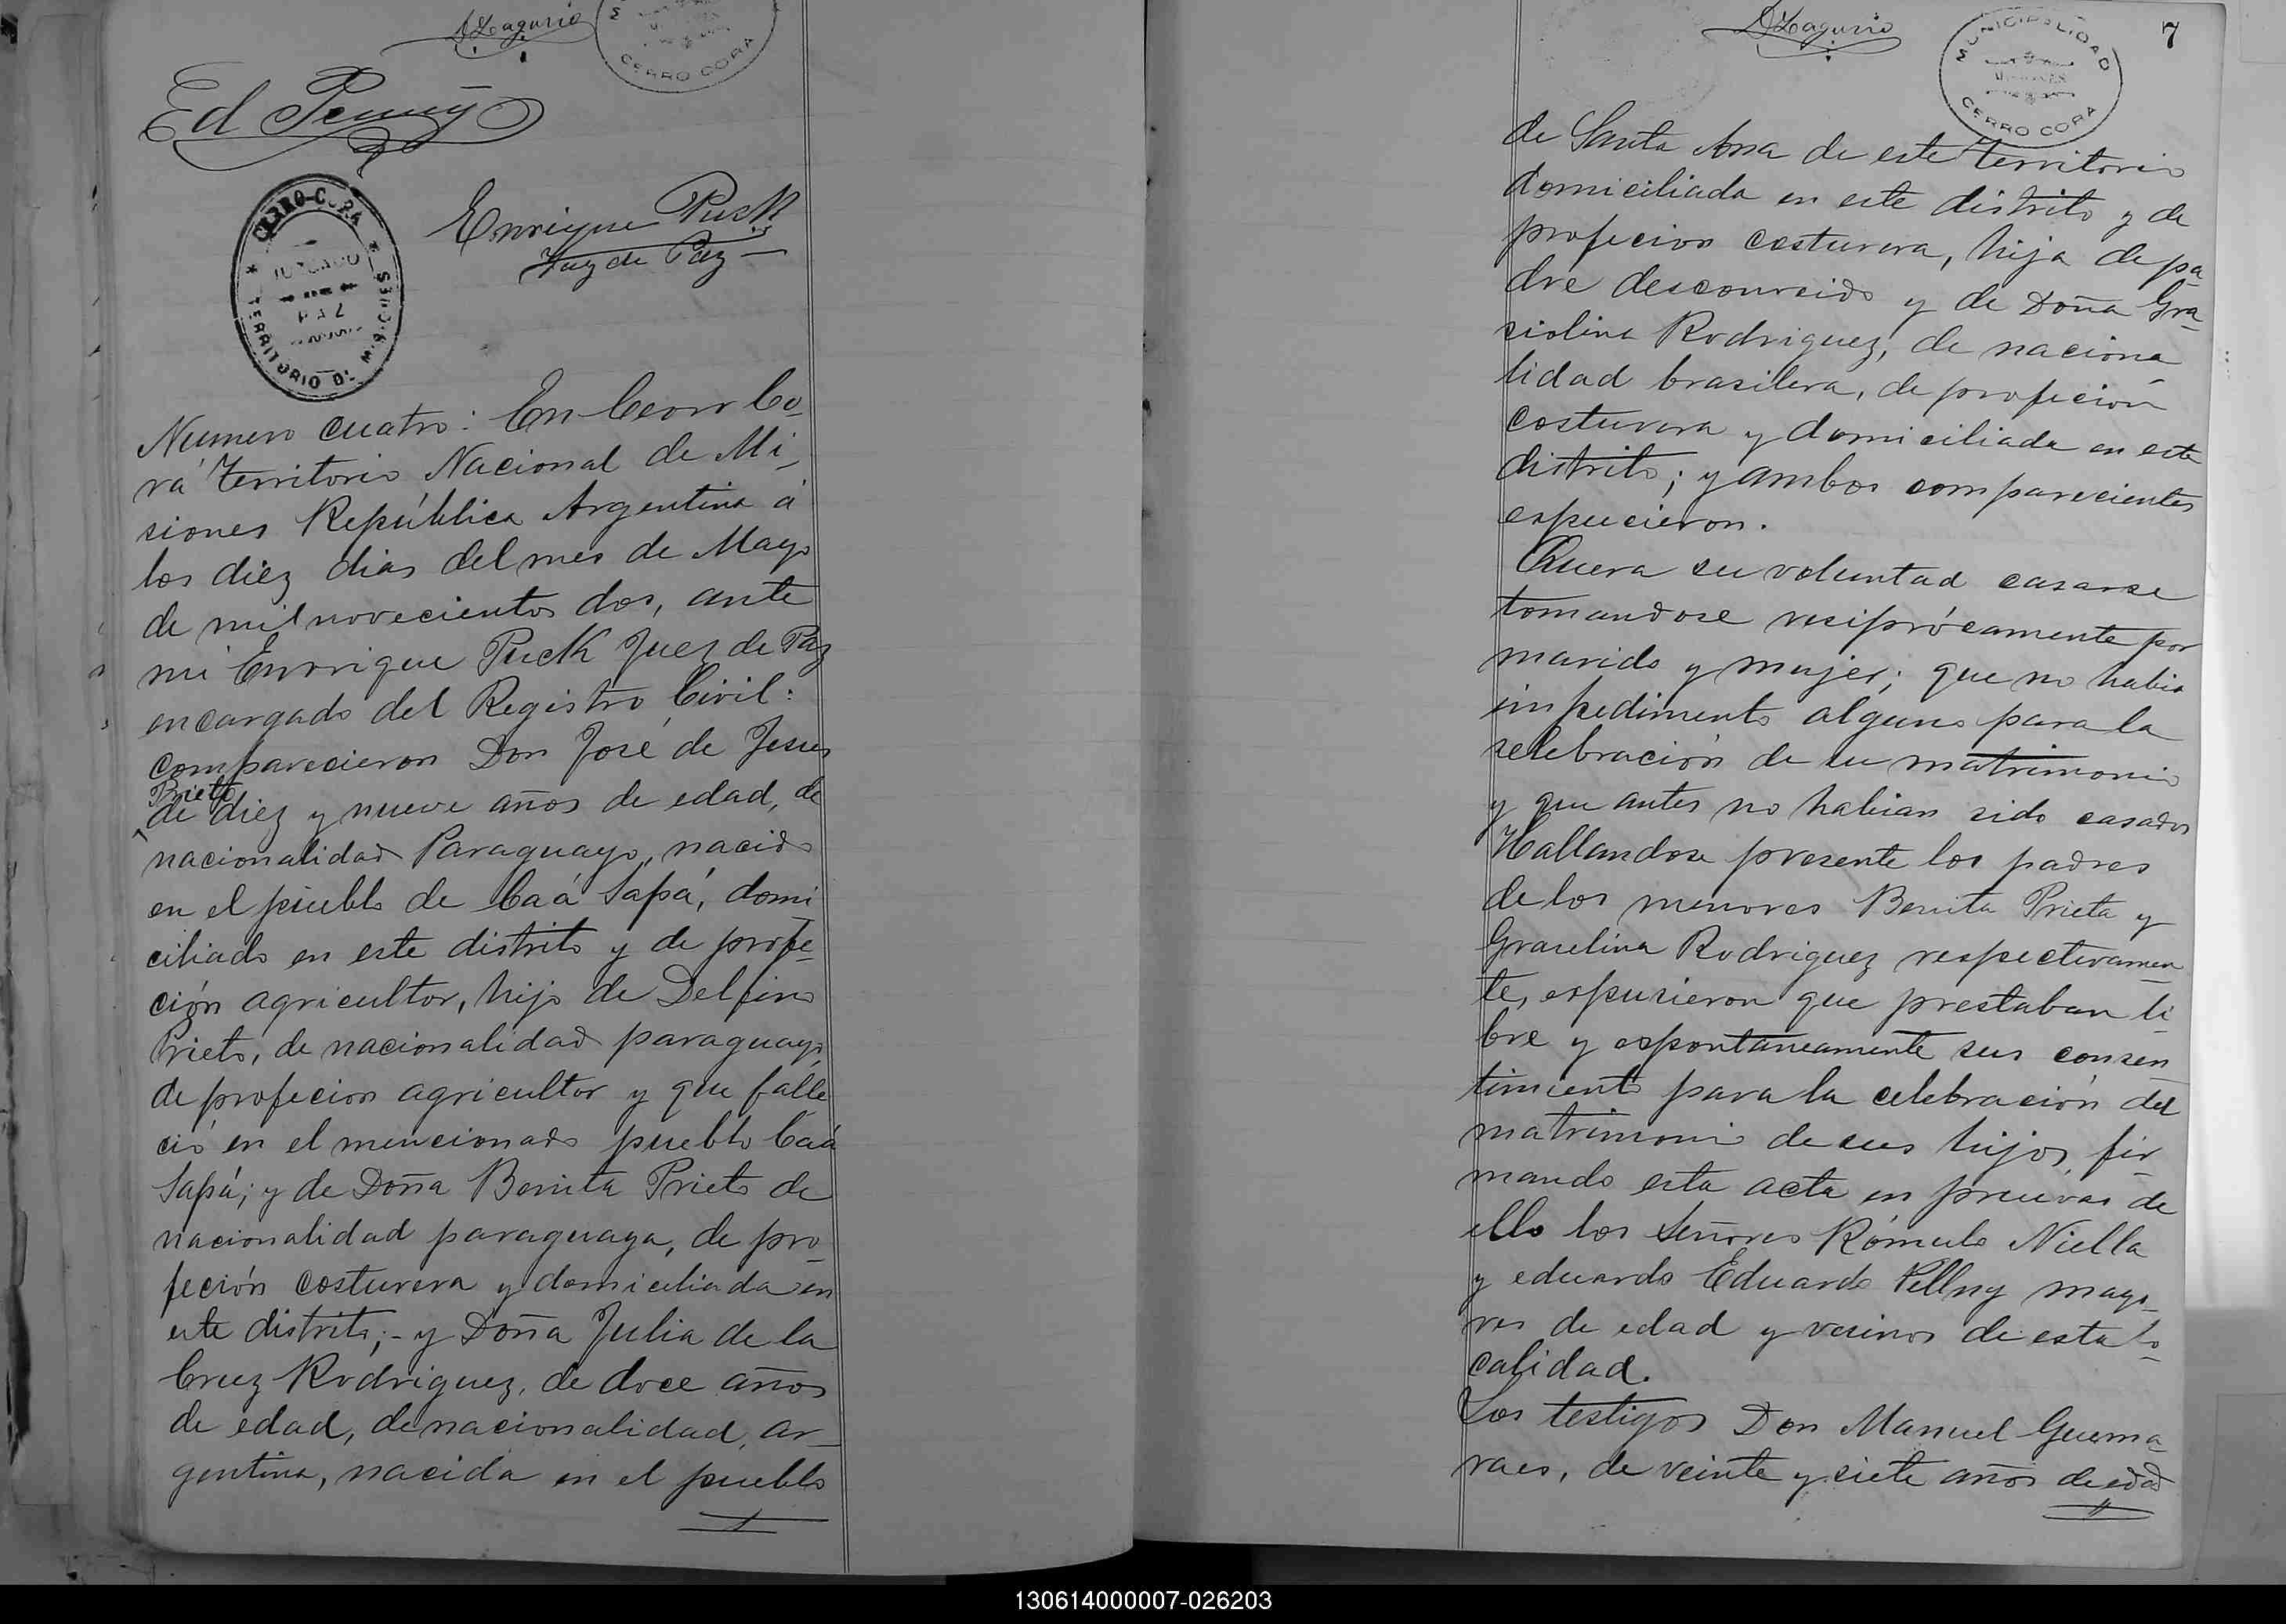 Ed Penny
CERRO CORA
CERRO-CORA
JUZGADO
DE
PAZ
TERRITORIO DE MISIONES
Enrique Puck
Juez de Paz
Número cuatro: En Cerro Co-
rá Territorio Nacional de Mi-
siones República Argentina á
los diez dias del mes de Mayo
de mil novecientos dos, ante
mi Enrrique Puck Juez de Paz
encargado del Registro Civil:
comparecieron Don José de Jesus
Prieto
de diez y nueve años de edad, de
nacionalidad Paraguayo, nacido
en el pueblo de Caá Sapá, domi
ciliado en este distrito y de profe-
ción agricultor, hijo de Delfino
Prieto, de nacionalidad paraguayo,
de profecion agricultor y que falle
ció en el mencionado pueblo Caá
Sapá; y de Doña Benita Prieto de
nacionalidad paraguaya, de pro-
feción costurera y domiciliada en
este distrito;- y Doña Julia de la
Cruz Rodriguez, de doce años
de edad, de nacionalidad, ar-
gentina, nacida en el pueblo
7
MUNICIPALIDAD
MISIONES
CERRO CORA
de Santa Ana de este territorio
domiciliada en este distrito y de
profecion costurera, hija de pa-
dre desconocido y de Doña Gra-
siolina Rodriguez, de naciona
lidad brasilera, de profeción
costurera y domiciliada en este
distrito; y ambos comparecientes
espucieron.
Quera su voluntad casarse
tomandose resiprócamente por
marido y mujer; que no habia
impedimento alguno para la
selebración de su matrimonio
y que antes no habian sido casados
Hallandose presente los padres
de los menores Benita Prieta y
Graselina Rodriguez respectivamen-
te, espusieron que prestaban li-
bre y espontaneamente sus consen-
timiento para la celebración del
matrimonio de sus hijos, fir-
mando esta acta en pruevas de
ello los señores Rómulo Niella
y eduardo Eduardo Pellny mayo-
res de edad y vecinos de esta lo-
calidad.
Los testigos Don Manuel Guema-
raes, de veinte y siete años de edad
130614000007-026203